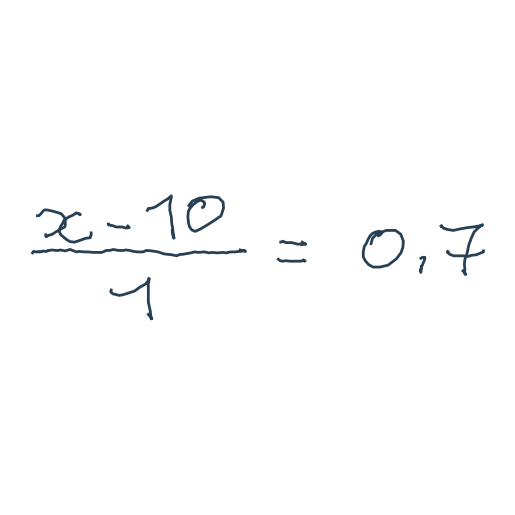 x - 10
1
= 0,7